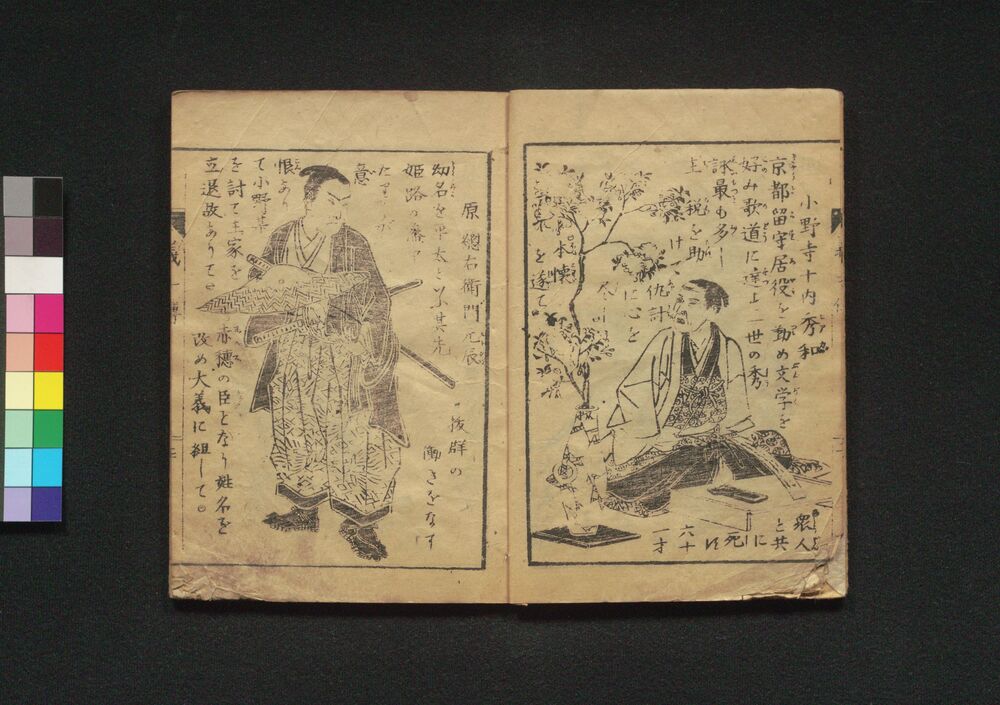 小野寺十内秀和
京都留守居役を勤め文学を
好み歌道に達し一世の秀
詠最も多し
主税を助
け
仇討
に心を
本懐
を遂て
衆人
と共
に
死
す
六十
一才
原惣右衛門元辰
幼名を平太と云其先
姫路の藩中
意
恨あり
て小野某
を討て主家を
立退故ありて
赤穂の臣となり姓名を
改め大義に組して
抜群の
働きをなす